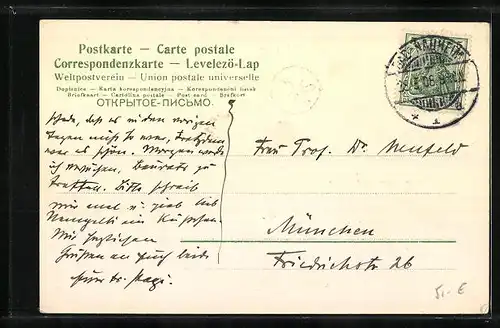 Postkarte — Carte postale
Correspondenzkarte — Levelező-Lap
Weltpostverein — Union postale universelle
Dopisnice — Karta korespondencyjna — Korespondenční lístek
Briefkaart — Cartolina postale — Post card — Brefkort
ОТКРЫТОЕ-ПИСЬМО.
Schade, dass es in den vorigen
Tagen nicht so war, trotzdem
war es schön. Morgen werde
ich versuchen, Baurats zu
treffen. Bitte schreib
mir mal u. gieb
Mit herzlichen
Grüßen an Euch beide
Frau Prof. Dr. Neufeld
München
Friedrichstr 26
51.- €